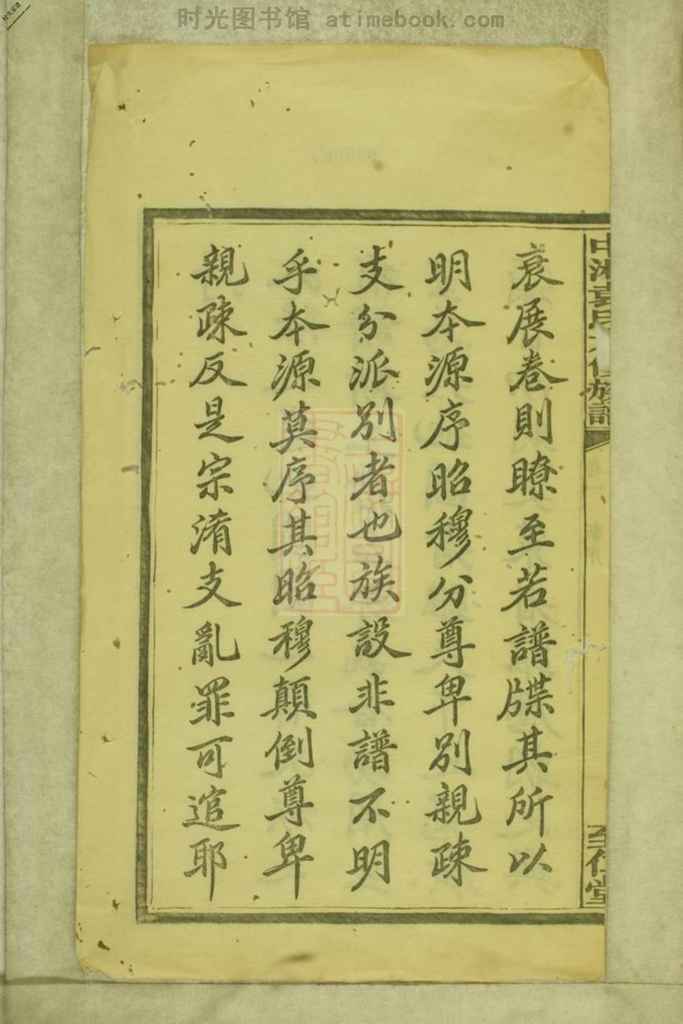 时光图书馆 atimebook.com
衰展卷則瞭至若譜牒其所以
明本源序昭穆分尊卑別親疎
支分派別者也族設非譜不明
乎本源莫序其昭穆顛倒尊卑
親疎反是宗淆支亂罪可逭耶
至仁堂